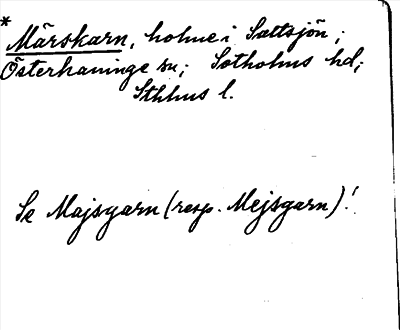 * Märskarn, holme i Saltsjön;
Österhaninge sn; Sotholms hd;
Sthlms l.
Se Majsgarn (resp. Mejsgarn)!